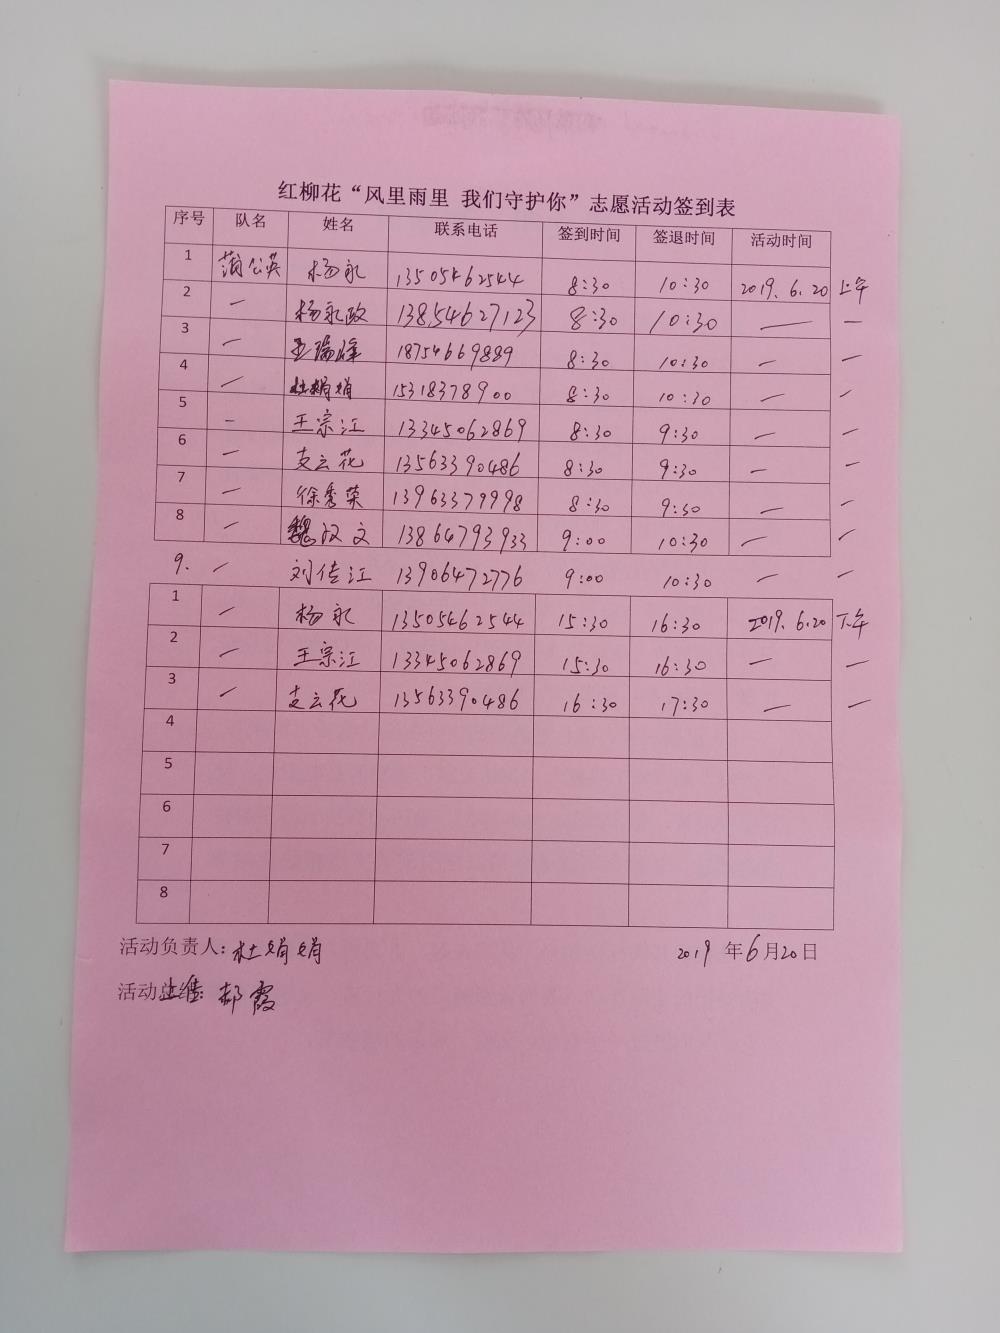 红柳花“风里雨里 我们守护你”志愿活动签到表
序号 队名 姓名 联系电话 签到时间 签退时间 活动时间
1 蒲公英 杨永 13505462544 8:30 10:30 2019.6.20 上午
2 — 杨永政 13854627123 8:30 10:30 — —
3 — 王瑞峰 18754669889 8:30 10:30 — —
4 — 杜娟娟 15318378900 8:30 10:30 — —
5 — 王宗江 13345062869 8:30 9:30 — —
6 — 支云花 13563390486 8:30 9:30 — —
7 — 徐秀荣 13963379998 8:30 9:30 — —
8 — 魏汉文 13864793933 9:00 10:30 — —
9. — 刘传江 13906472776 9:00 10:30 — —
1 — 杨永 13505462544 15:30 16:30 2019.6.20 下午
2 — 王宗江 13345062869 15:30 16:30 — —
3 — 支云花 13563390486 16:30 17:30 — —
4
5
6
7
8
活动负责人：杜娟娟 2019 年6月20日
活动 郝霞